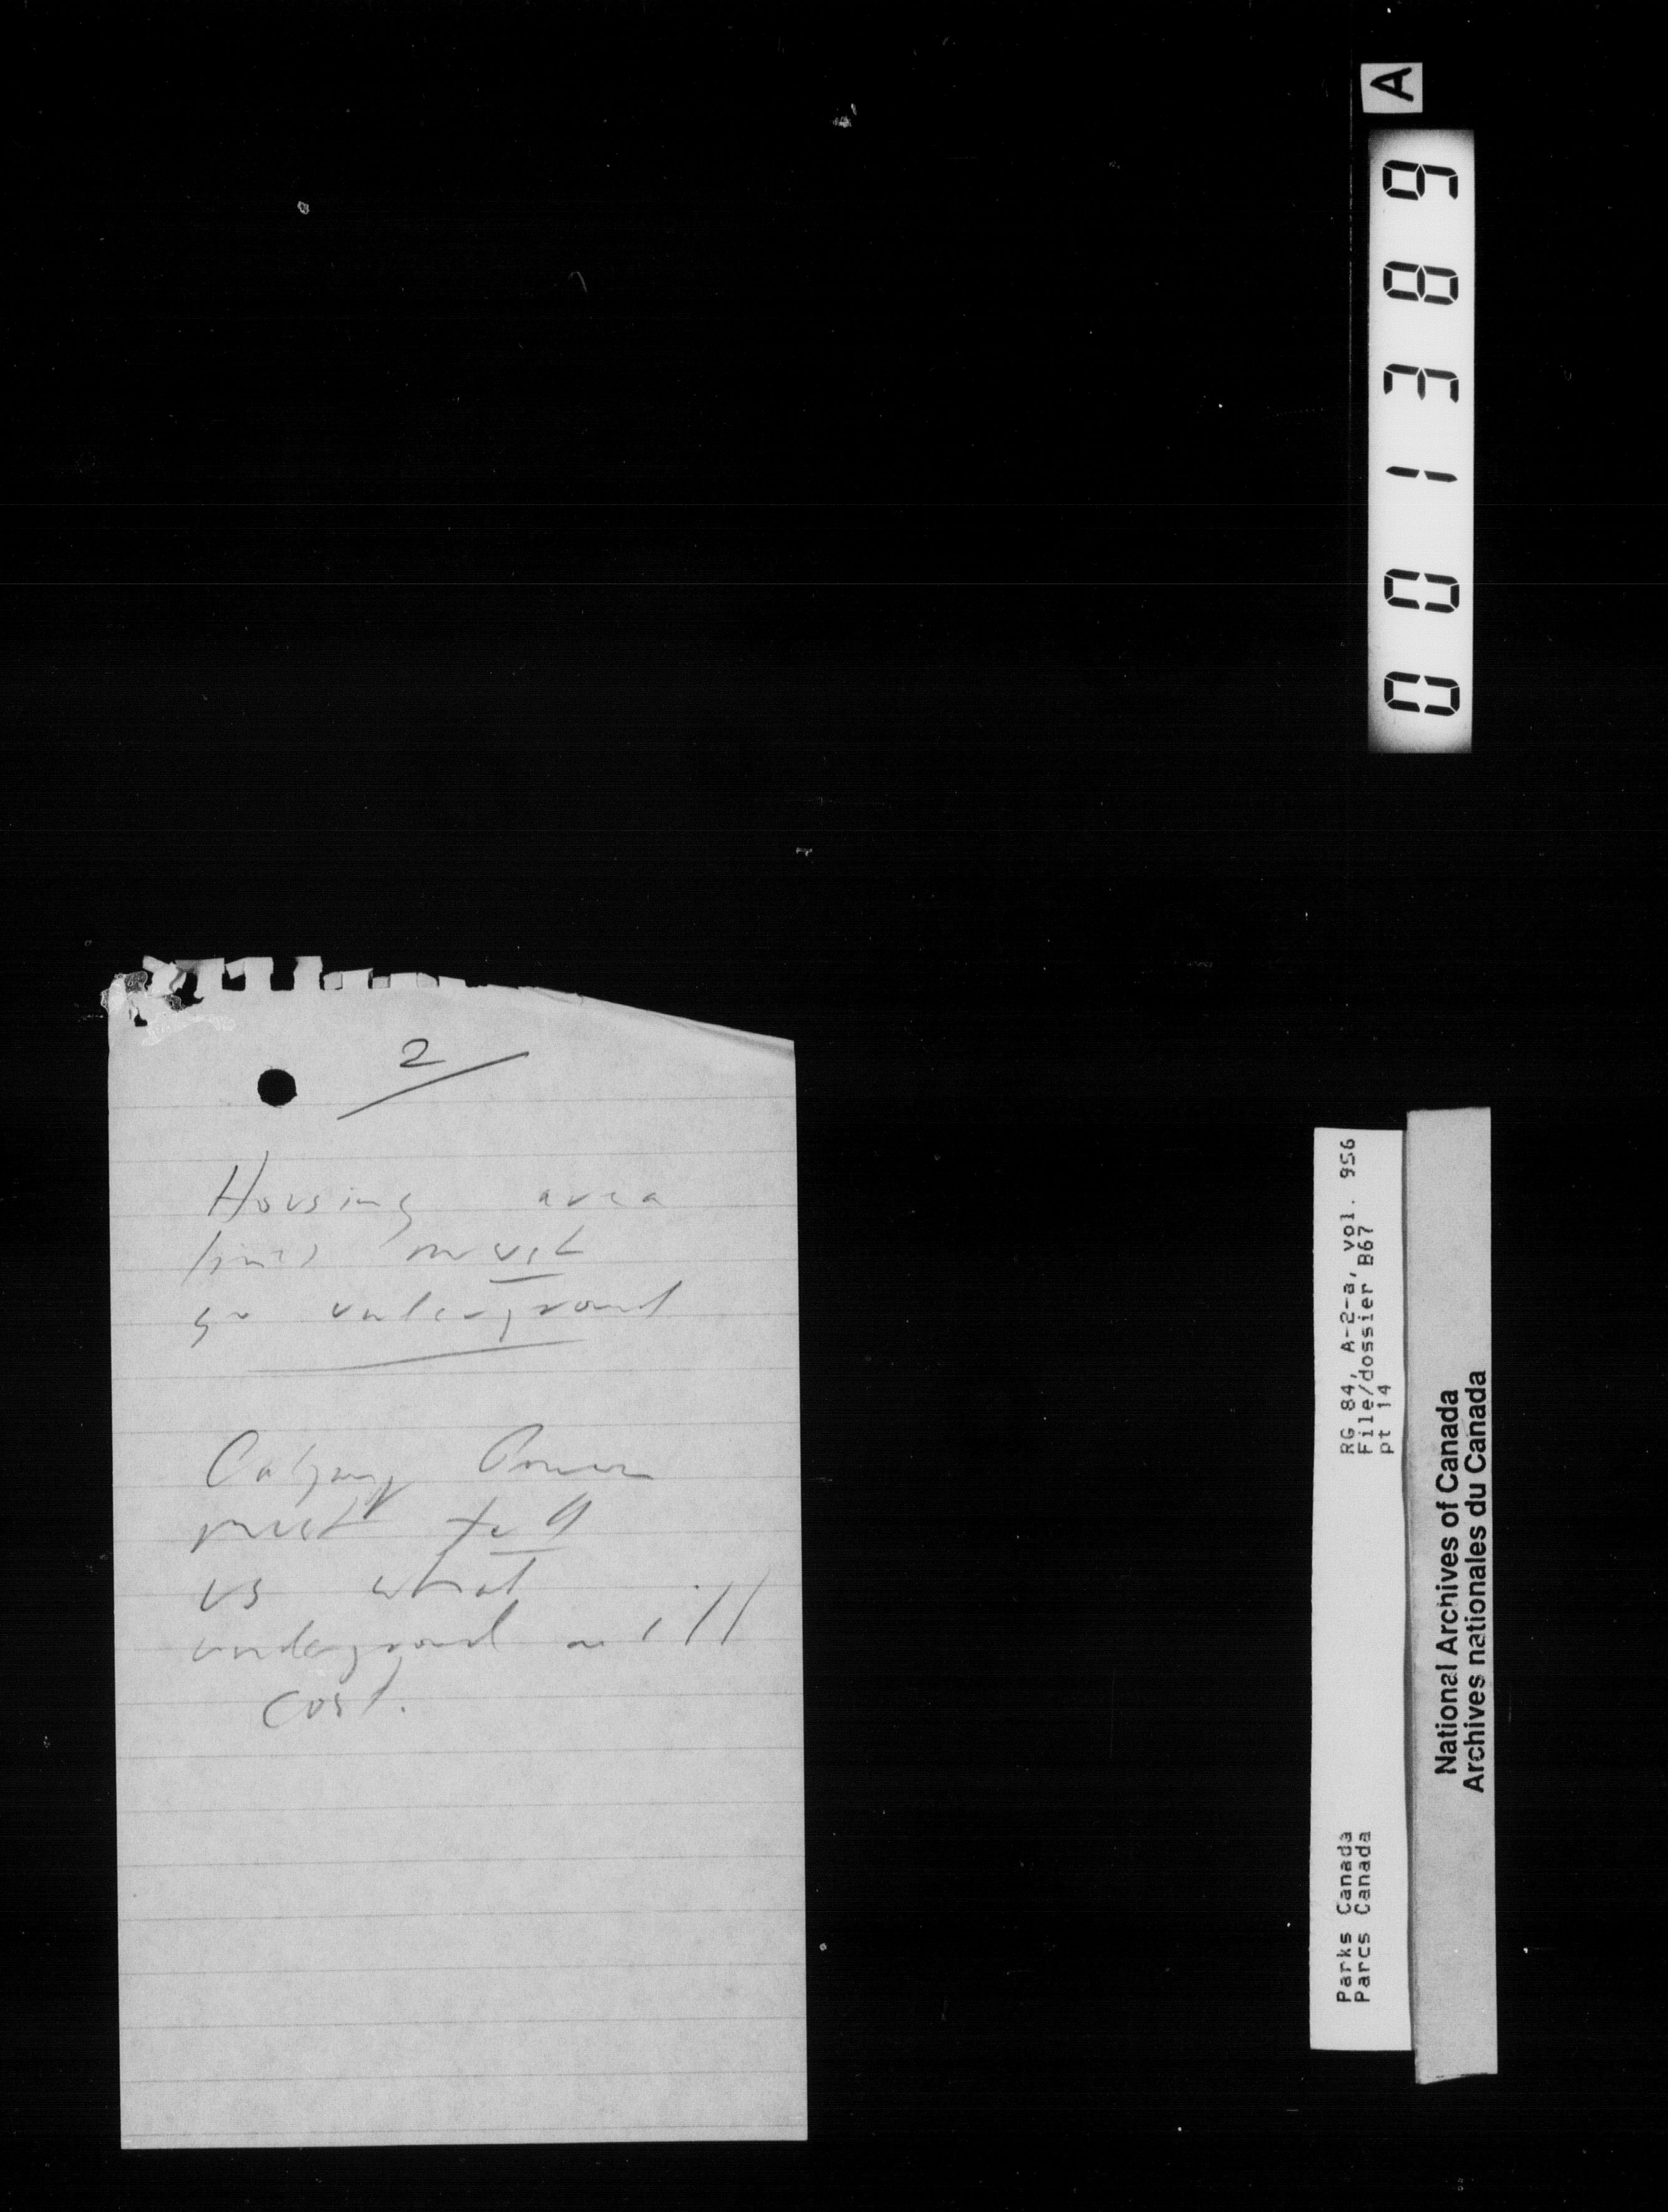 2
Housing area
lines must
go underground
Calgary Power
must tell
us what
underground will
cost.
A
001389
RG 84, A-2-a, vol. 956
File/dossier B67
pt 14
Parks Canada
Parcs Canada
National Archives of Canada
Archives nationales du Canada